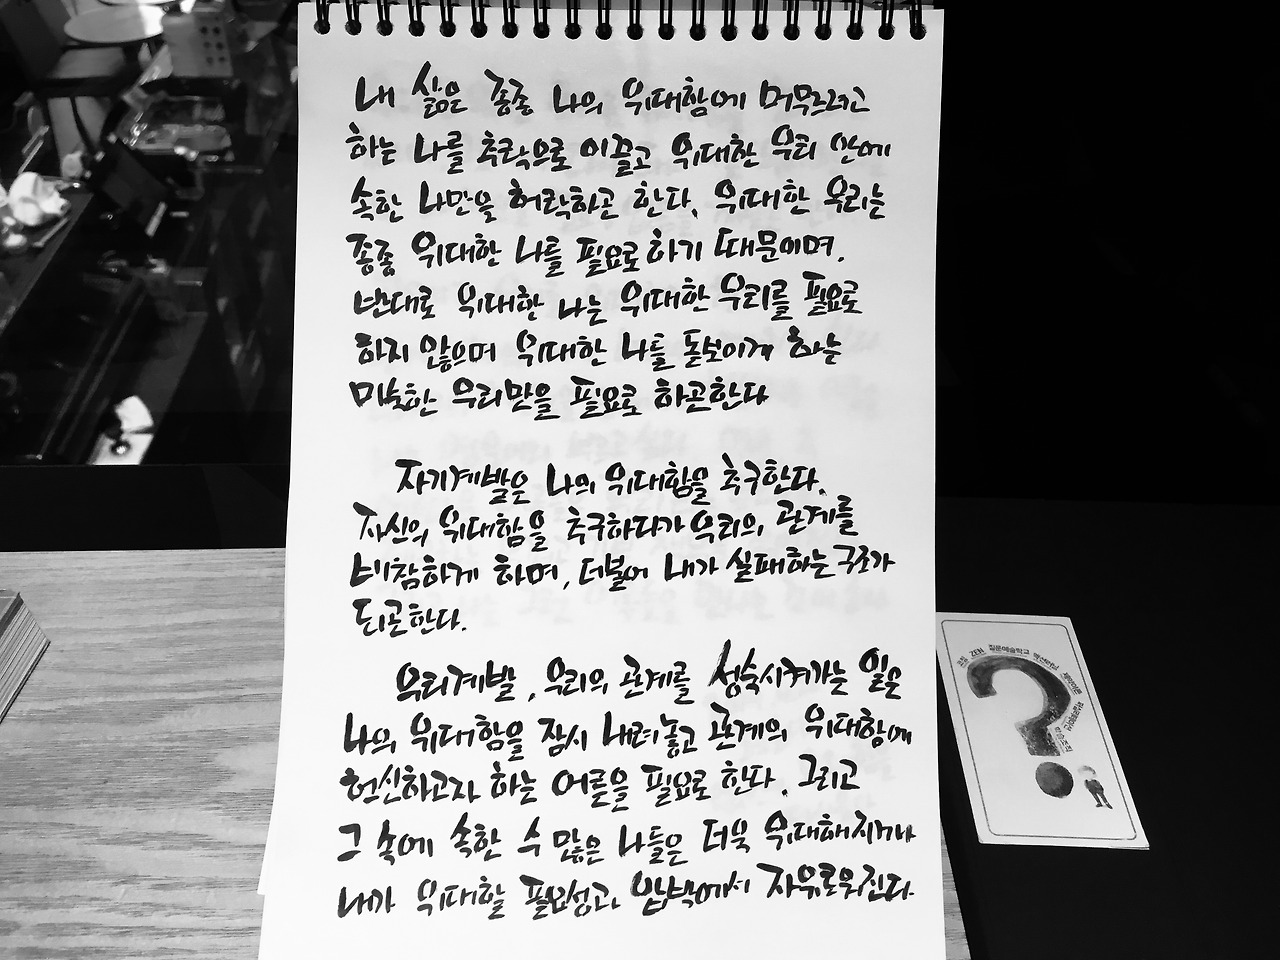 내 삶은 종종 나의 위대함에 머무르려고
하는 나를 추락으로 이끌고 위대한 우리 안에
속한 나만을 허락하곤 한다. 위대한 우리는
종종 위대한 나를 필요로 하기 때문이며.
반대로 위대한 나는 위대한 우리를 필요로
하지 않으며 위대한 나를 돋보이게 하는
미숙한 우리만을 필요로 하곤한다
자기계발은 나의 위대함을 추구한다.
자신의 위대함을 추구하다가 우리의 관계를
비참하게 하며, 더불어 내가 실패하는 구조가
되곤한다.
우리계발, 우리의 관계를 성숙시켜가는 일은
나의 위대함을 잠시 내려놓고 관계의 위대함에
헌신하고자 하는 어른을 필요로 한다. 그리고
그 속에 속한 수 많은 나들은 더욱 위대해지거나
내가 위대할 필요성과 압박에서 자유로워진다
ZEN 질문예술학교